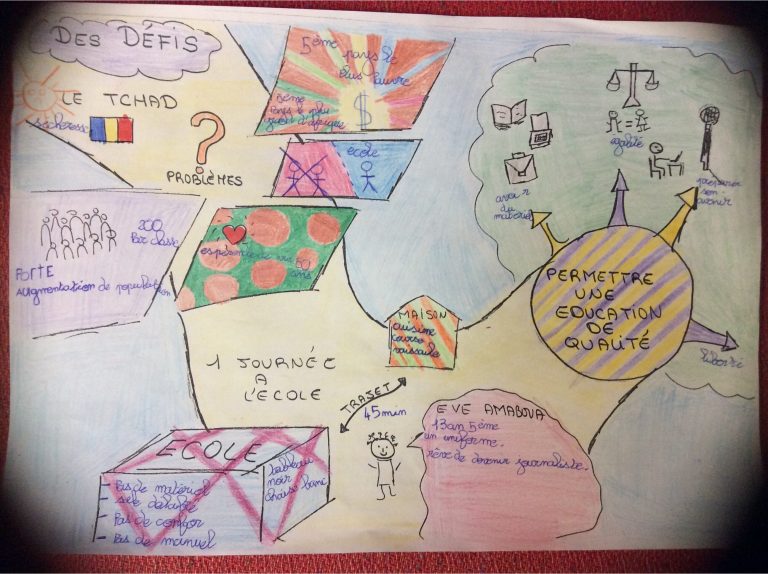 DES DÉFIS
LE TCHAD
sécheresse
?
PROBLÈMES
5ème pays le
plus pauvre
5ème
Pays le plus
$
ecole
200
Par classe
FORTE
AUgmentation de population
espérance
50
ans
avoir
du
matériel
=
égalité
préparer
son
avenir
liberté
PERMETTRE
UNE
EDUCATION
DE
QUALITÉ
MAISON
cuisine
course
vaisselle
1 JOURNÉE
A
L'ECOLE
TRAJET
45min
EVE AMABOUA
13an 5ème
un uniforme.
rêve de devenir journaliste.
ECOLE
- Pas de matériel
- Pas de
- Pas de manuel
tableau
noir
chaise banc